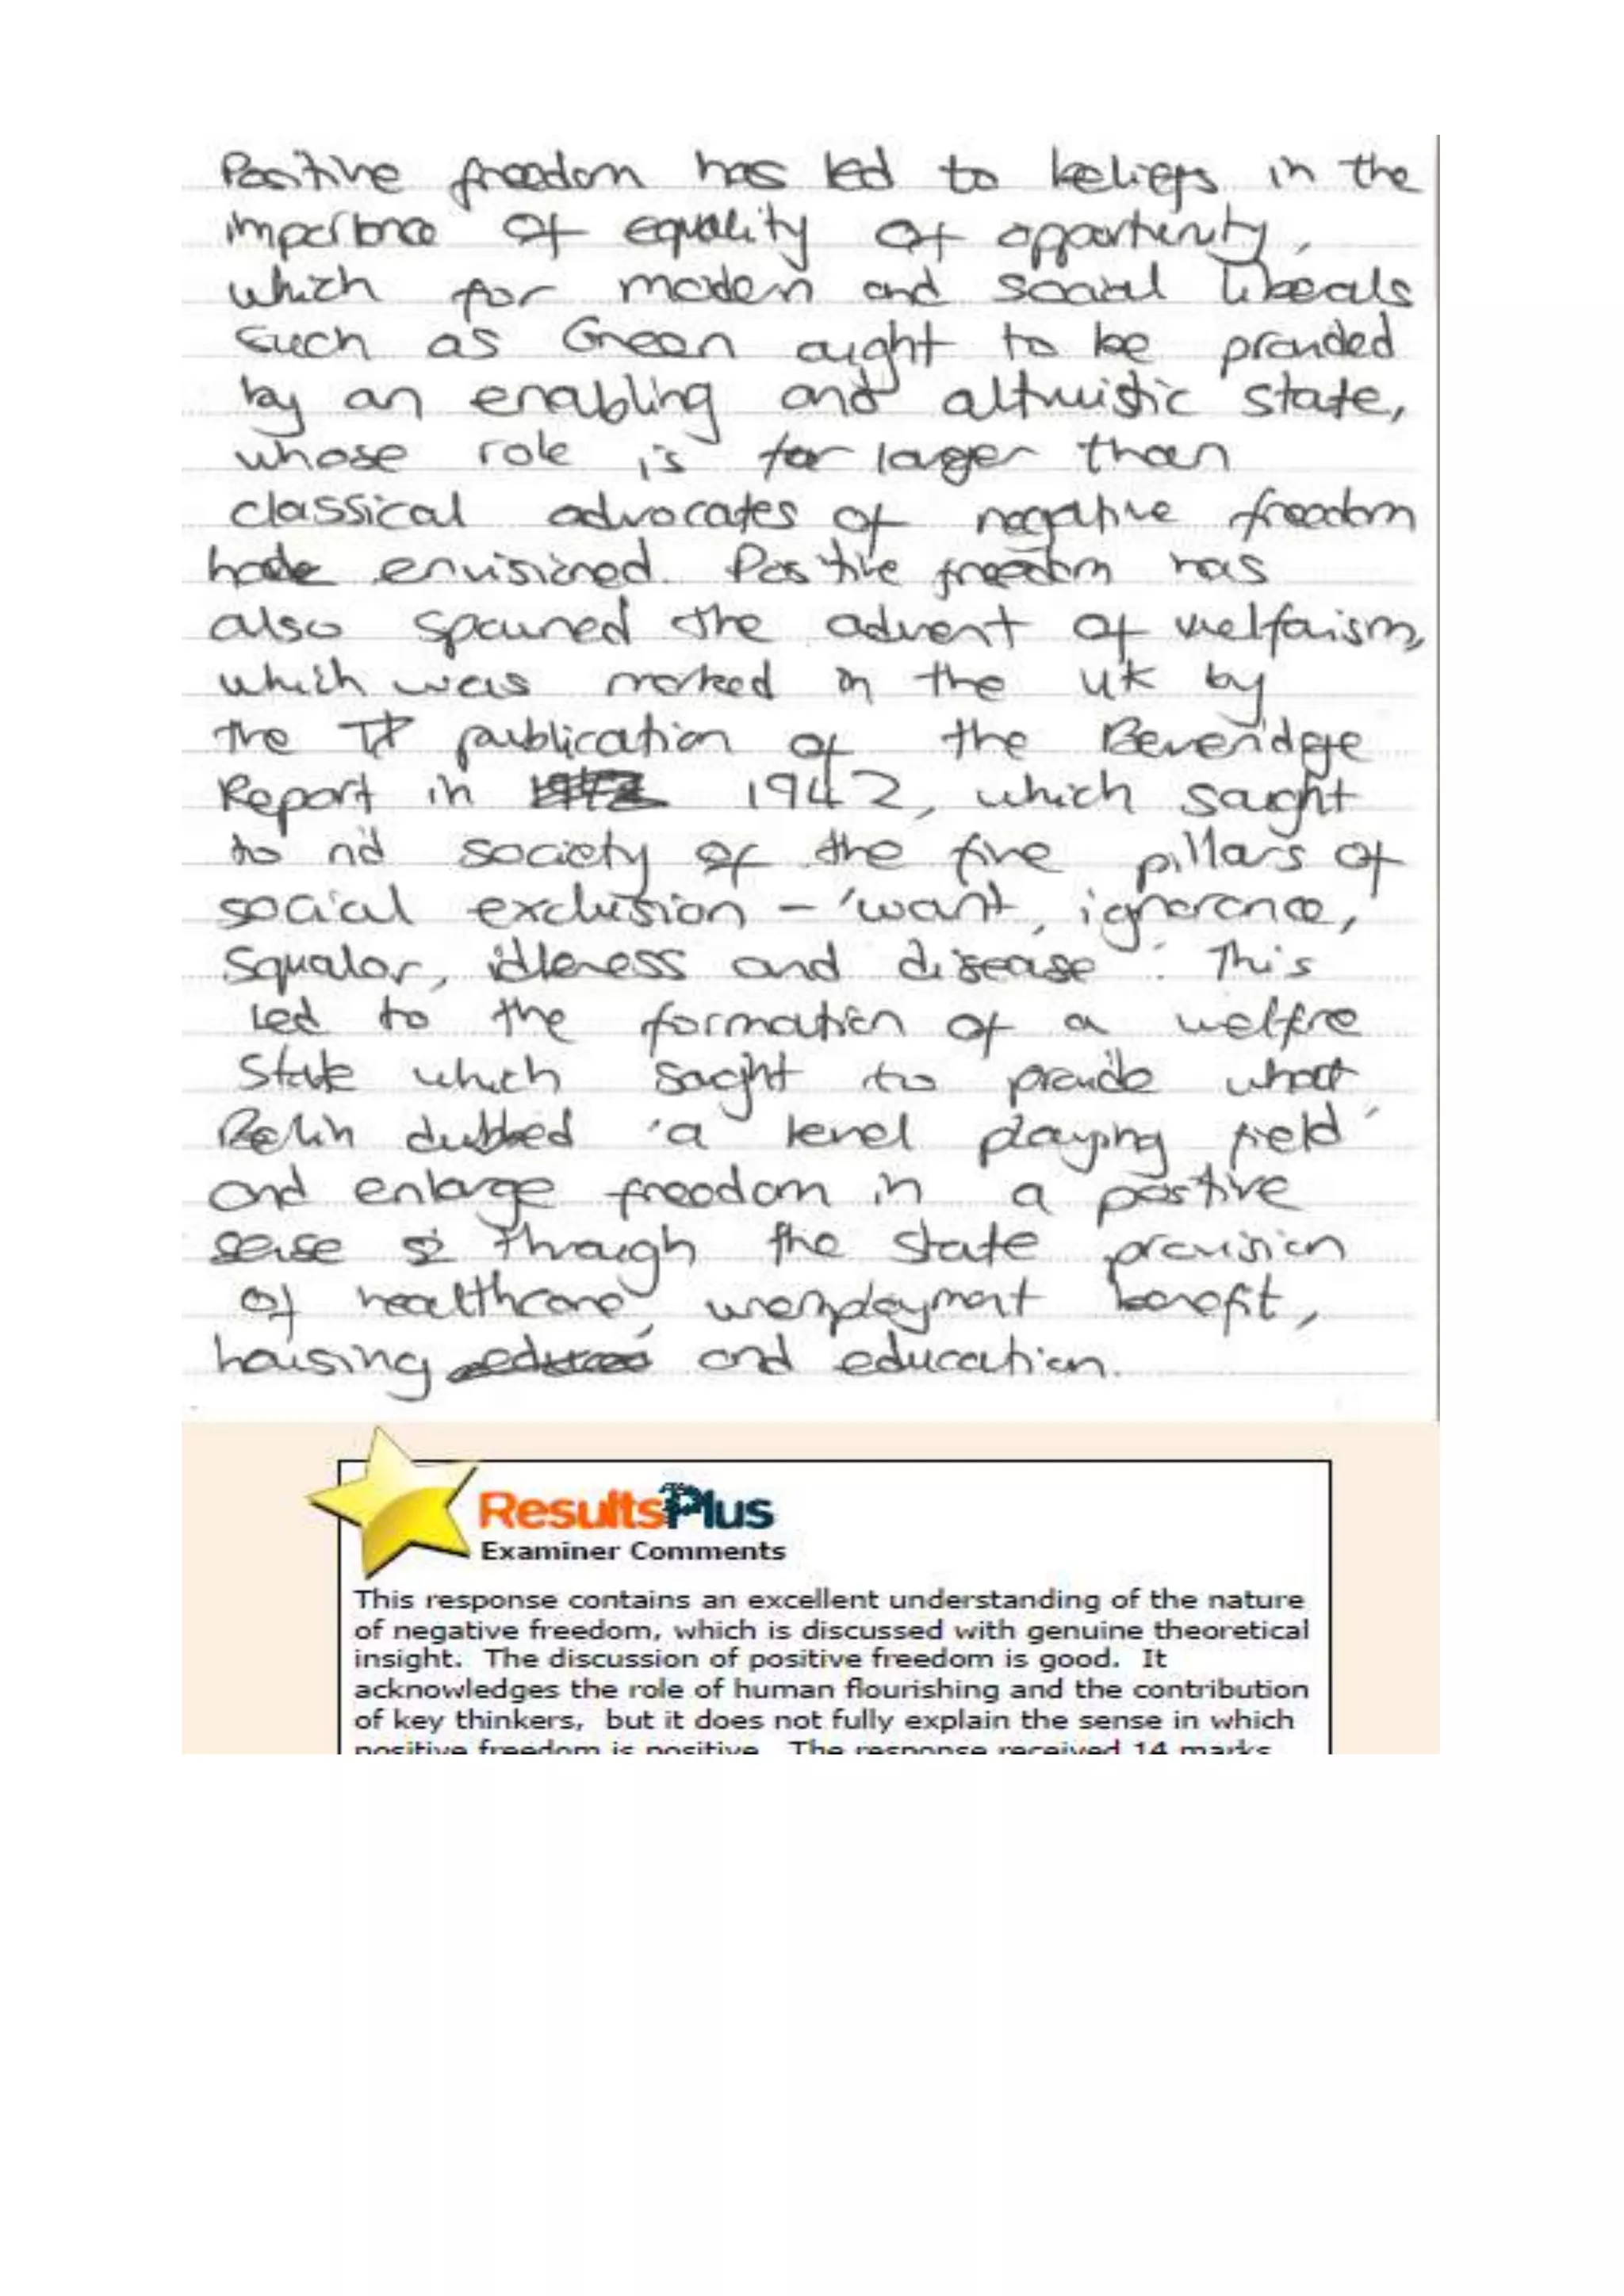 Positive freedom has led to beliefs in the
importance of equality of opportunity,
which for modern and social liberals
such as Green ought to be provided
by an enabling and altruistic state,
whose role is far larger than
classical advocates of negative freedom
had envisioned. Positive freedom has
also spawned the advent of welfarism,
which was marked in the UK by
the publication of the Beveridge
Report in 1942, which sought
to rid society of the five pillars of
social exclusion - 'want, ignorance,
squalor, idleness and disease'. This
led to the formation of a welfre
state which sought to provide what
Berlin dubbed 'a level playing field'
and enlarge freedom in a positive
sense through the state provision
of healthcare, unemployment benefit,
housing and education.
ResultsPlus
Examiner Comments
This response contains an excellent understanding of the nature
of negative freedom, which is discussed with genuine theoretical
insight. The discussion of positive freedom is good. It
acknowledges the role of human flourishing and the contribution
of key thinkers, but it does not fully explain the sense in which
positive freedom is positive. The response received 14 marks